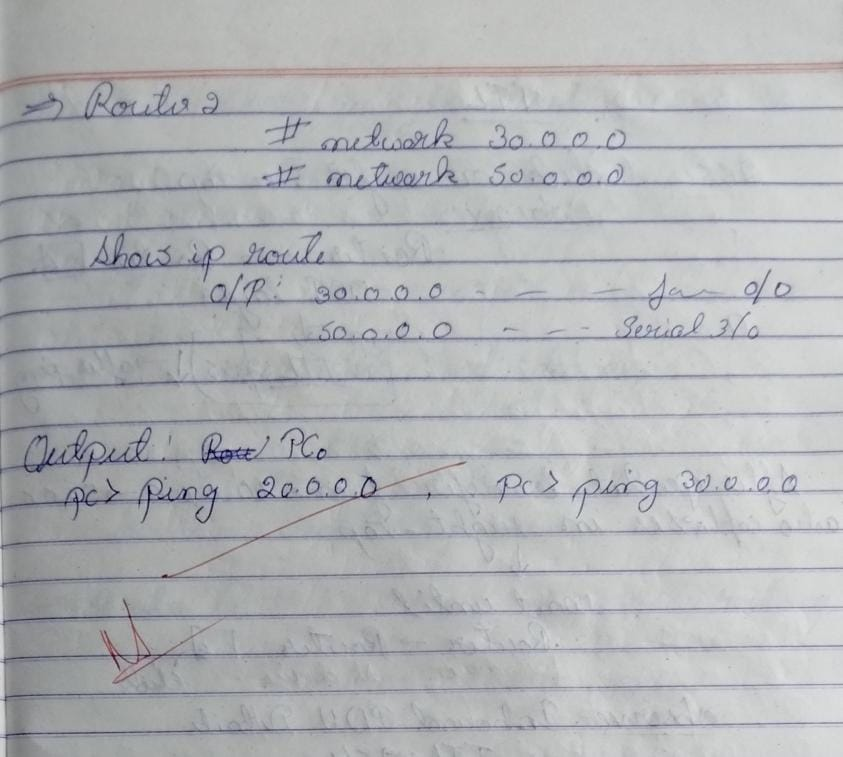 ⇒ Router 2
# network 30.0.0.0
# network 50.0.0.0
Show ip route
O/P: 30.0.0.0 - — — fa— 0/0
50.0.0.0 - - - - Serial 3/0
Output: PC0
pc> ping 20.0.0.0 , pc> ping 30.0.0.0